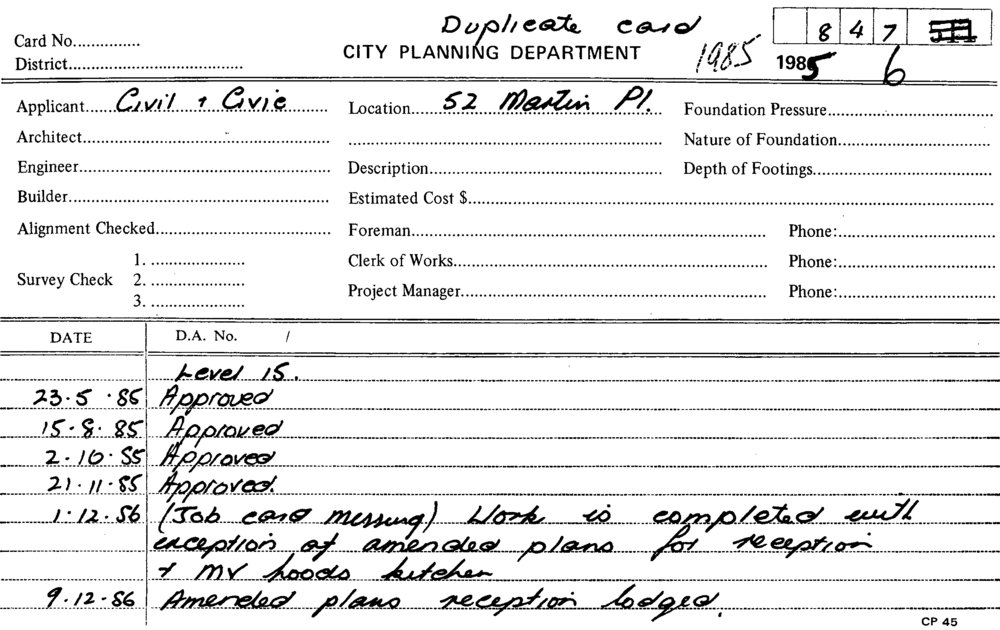 Duplicate card
Card No...............
CITY PLANNING DEPARTMENT
1985
8 4 7
1985 6
District.......................................
Applicant.....Civil + Civic
Location.....52 Martin Pl.
Foundation Pressure.....................................
Architect.....................................................
Nature of Foundation..................................
Engineer......................................................
Description....................................................
Depth of Footings.......................................
Builder........................................................
Estimated Cost $.........................................................
Alignment Checked.....................................
Foreman..................................................................
Phone:...................................
Survey Check
1. ......................
Clerk of Works.........................................................
Phone:...................................
2. ......................
Project Manager........................................................
Phone:...................................
3. ......................
DATE D.A. No. /
Level 15.
23.5.86 Approved
15.8.85 Approved
2.10.85 Approved
21.11.85 Approved.
1.12.86 (Job card messing) Work is completed with
exception of amended plans for reception
+ MV hoods kitchen
9.12.86 Amended plans reception lodged.
CP 45